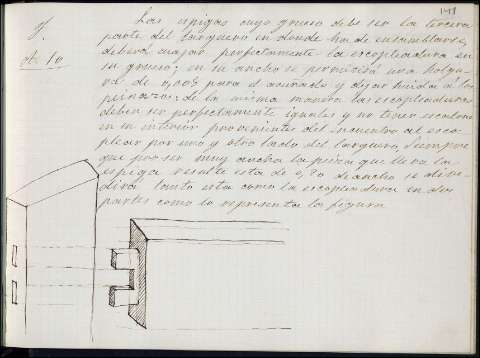 141
Las espigas cuyo grueso debe ser la tercera
parte del larguero en donde ha de ensamblarse,
deberá encajar perfectamente la escopleadura en
su grueso; en su ancho se permitirá una holgu-
ra de 0,005 para el acuñado y dejar huida a los
peinazos; de la misma manera las escopleaduras
deben ser perfectamente iguales y no tener escalones
en su interior provenientes del encuentro al esco-
plear por uno y otro lado del larguero, siempre
que por ser muy ancha la pieza que lleva la
espiga resulte esta de de ancho se divi-
dirá tanto esta como la escopleadura en dos
partes como lo representa la figura